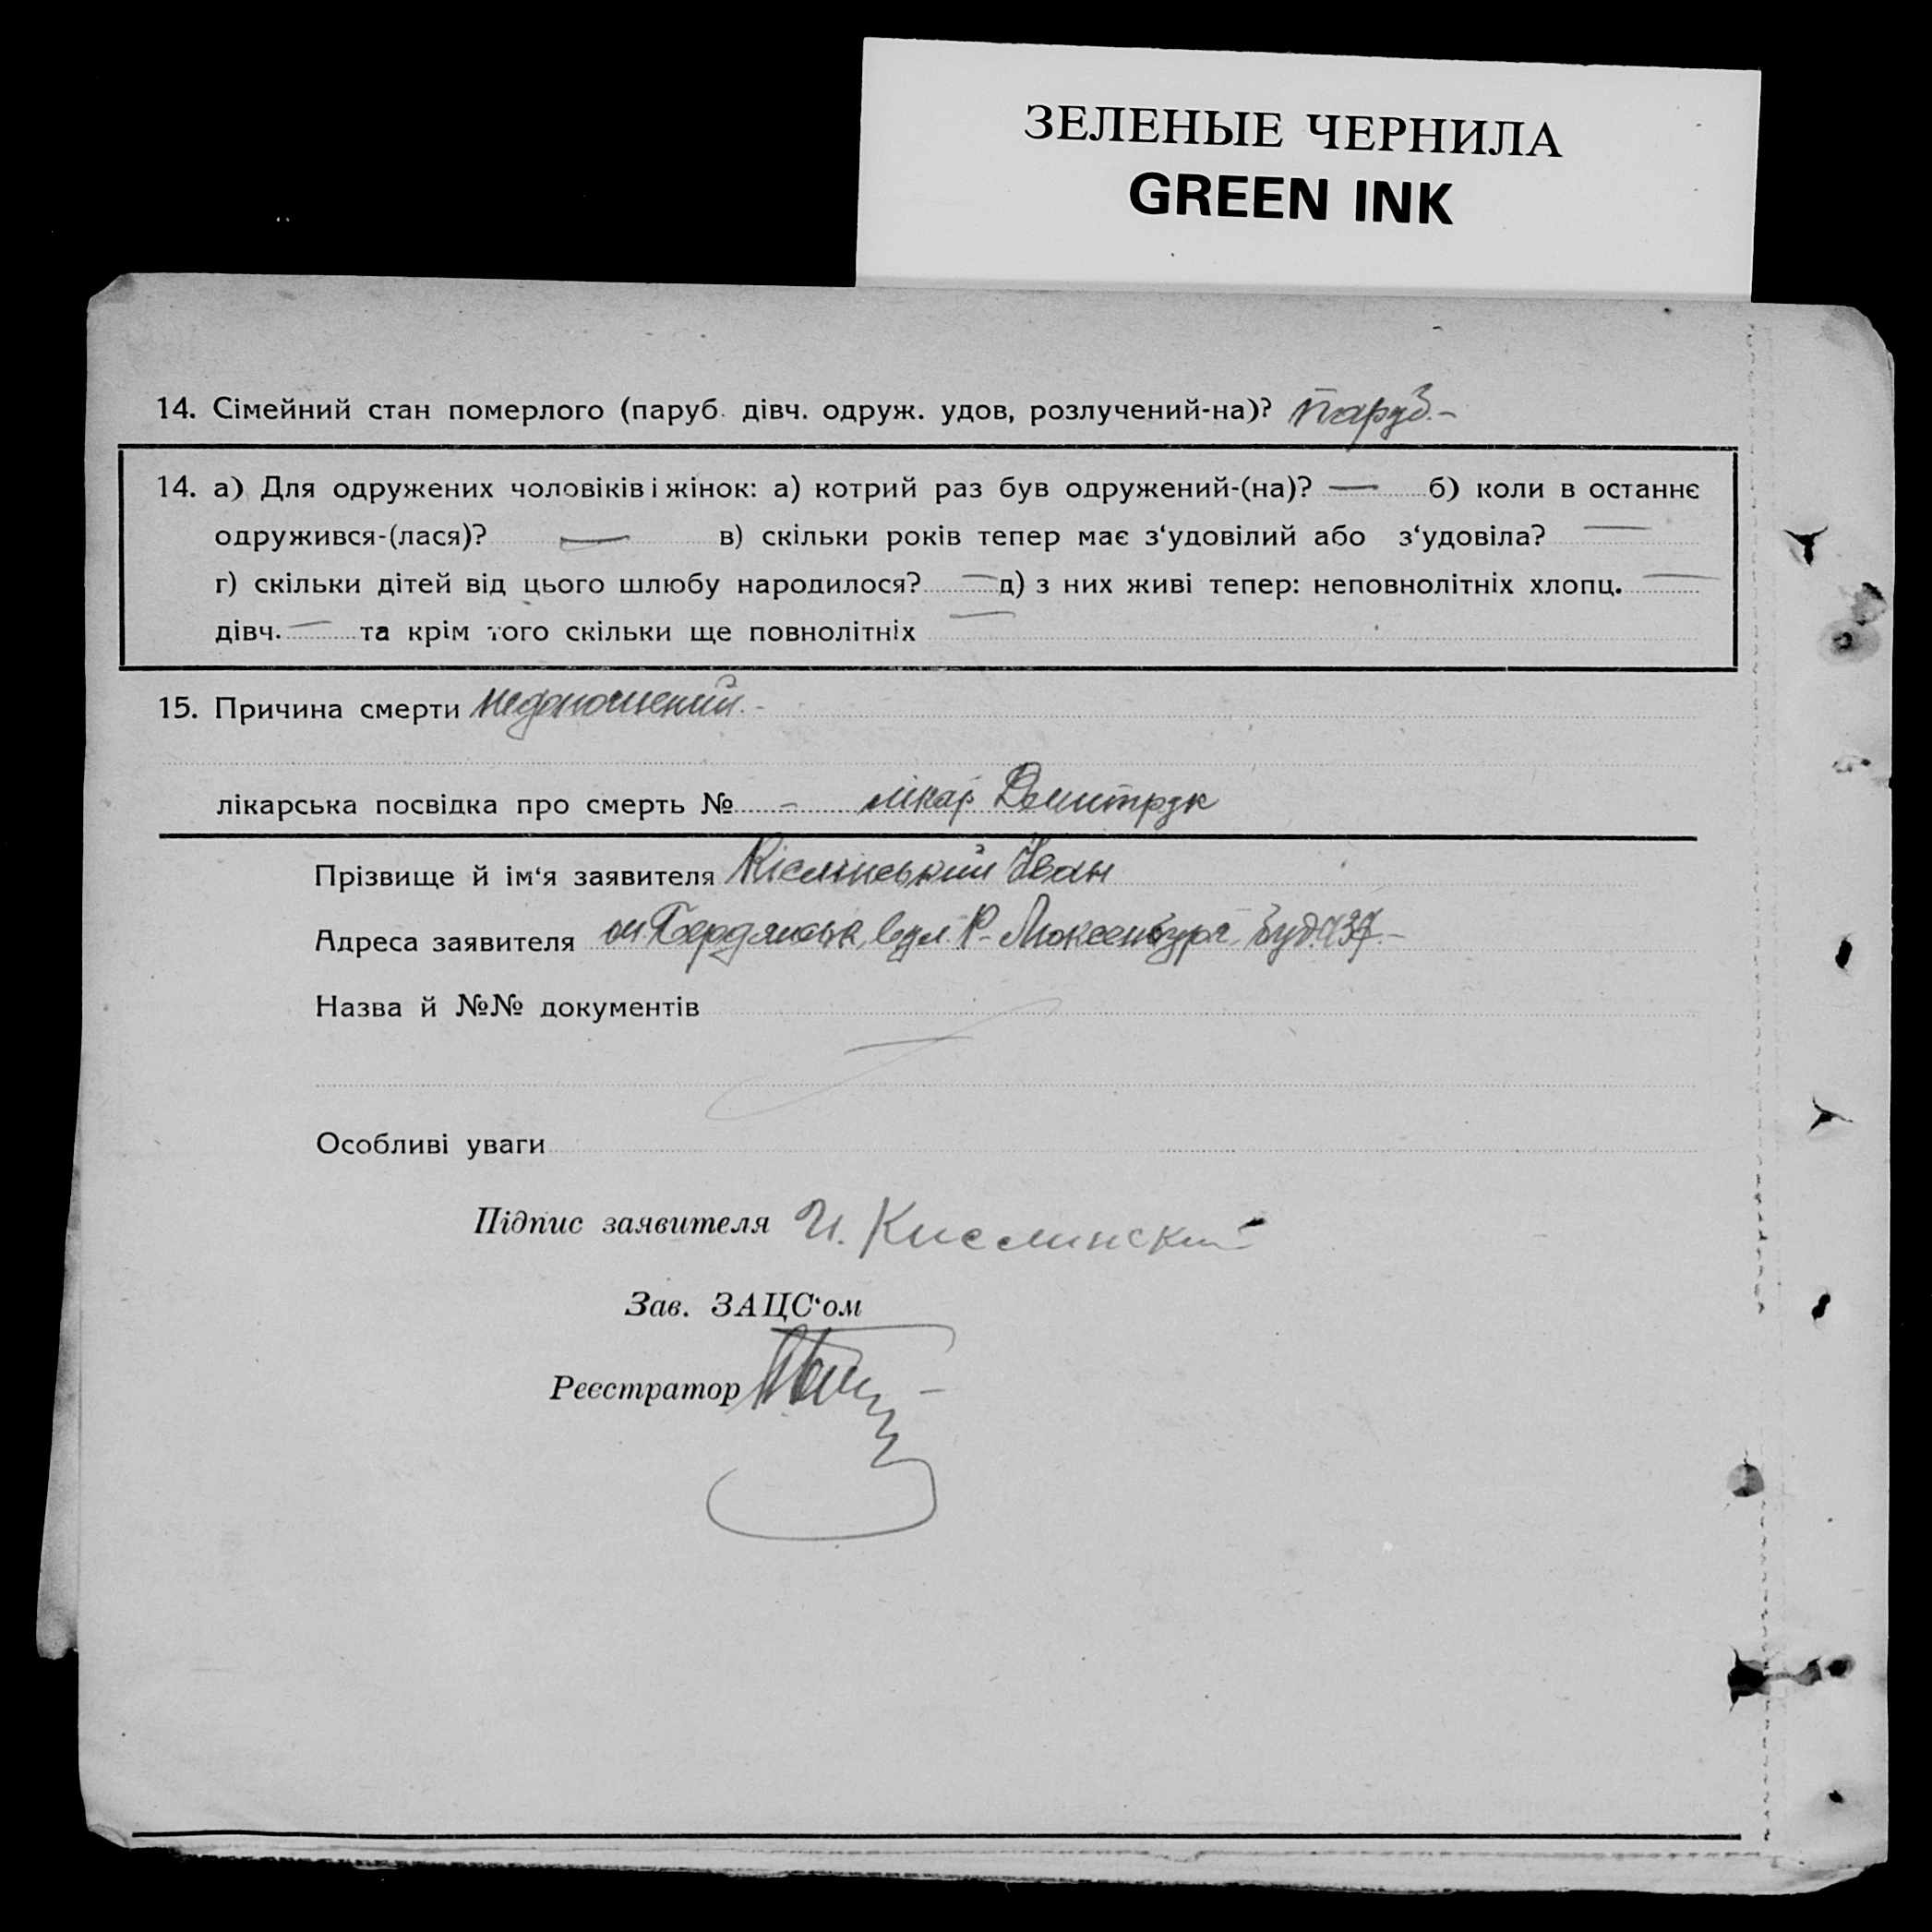 ЗЕЛЕНЫЕ ЧЕРНИЛА
GREEN INK
14. Сімейний стан померлого (паруб. дівч. одруж. удов, розлучений-на)? паруб.–
14. а) Для одружених чоловіків і жінок: а) котрий раз був одружений-(на)? — б) коли в останнє
одружився-(лася)? — в) скільки років тепер має з‘удовілий або з‘удовіла? —
г) скільки дітей від цього шлюбу народилося? — д) з них живі тепер: неповнолітніх хлопц. —
дівч. — та крім того скільки ще повнолітніх —
15. Причина смерти недоношений.–
лікарська посвідка про смерть № – лікар Домитрук
Прізвище й ім‘я заявителя Кіслінський Іван
Адреса заявителя м. Бердянськ, вул. Р-Люксенбург, буд.
Назва й №№ документів
Особливі уваги
Підпис заявителя И. Кислинский
Зав. ЗАЦС‘ом
Реєстратор